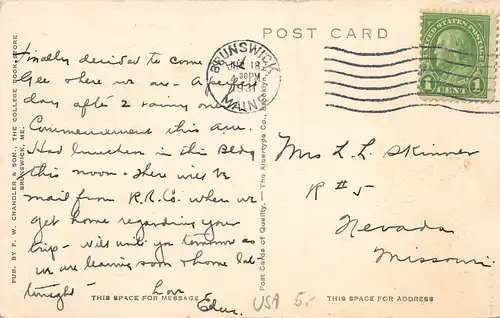 POST CARD
Finally decided to come
See where we are - A perfect
day after 2 rainy ones
Commencement this a.m.
Had luncheon in this Bldg
this noon. There will be
mail from R.R. Co. when we
get home regarding your
trip - Will write you tomorrow as
we are leaving soon & home late
tonight - Love
THIS SPACE FOR MESSAGE
PUB. BY F. W. CHANDLER & SON., THE COLLEGE BOOK STORE
BRUNSWICK, ME.
Post Cards of Quality. — The Albertype Co., Brooklyn
BRUNSWICK
18
30PM
1931
MAINE
UNITED STATES POSTAGE
1 CENT 1
Mrs L. L. Skinner
R #5
Nevada
Missouri
USA 5.-
THIS SPACE FOR ADDRESS